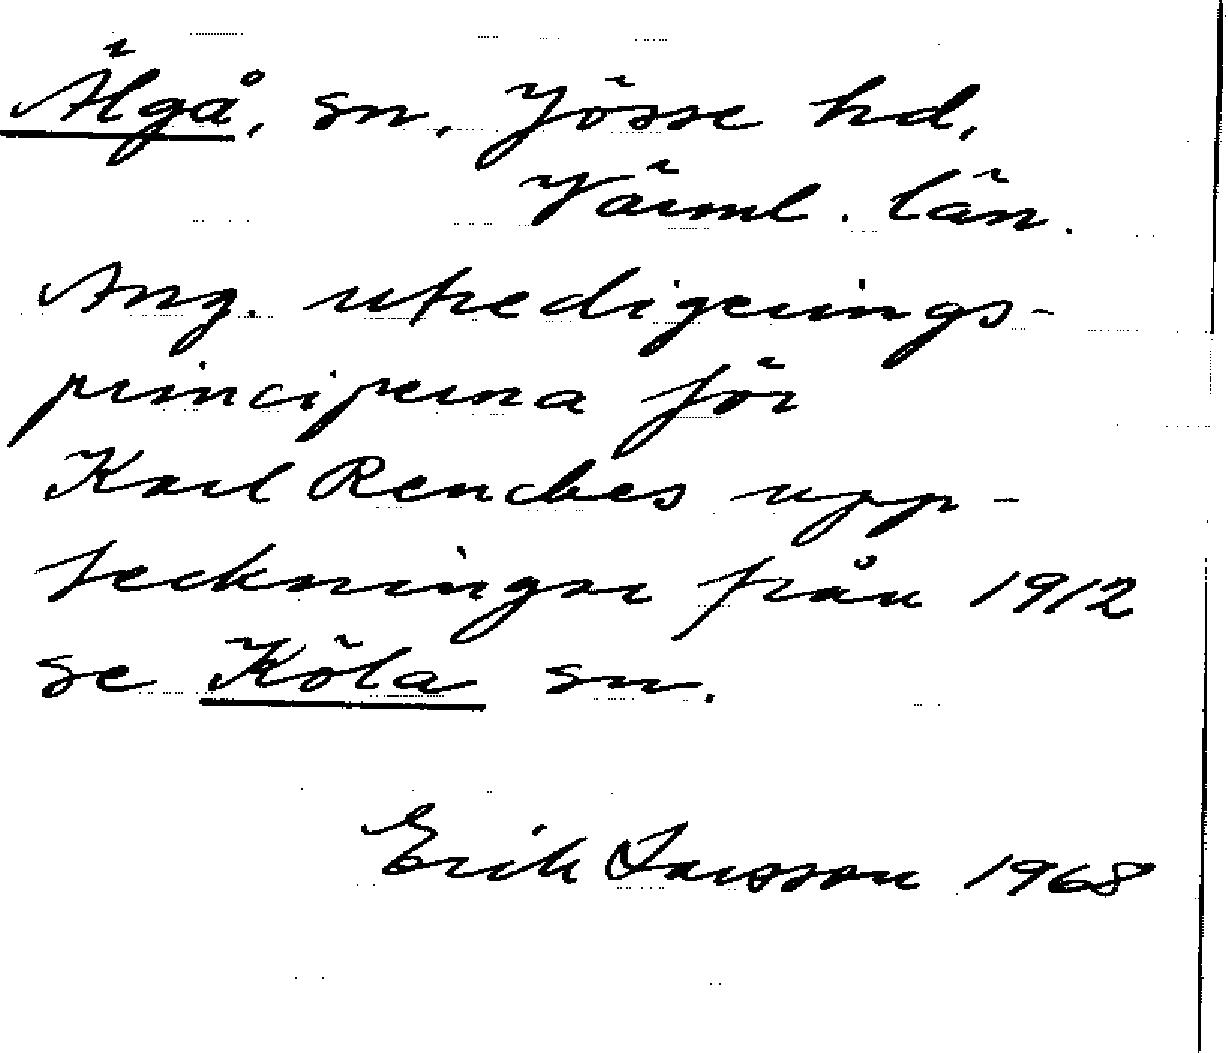 Älgå, sn, Jösse hd,
Värml. län.
Ang. utredigerings-
principerna för
Karl Rencbes upp-
teckningar från 1912
se Köla sn.
Erik Larsson 1968